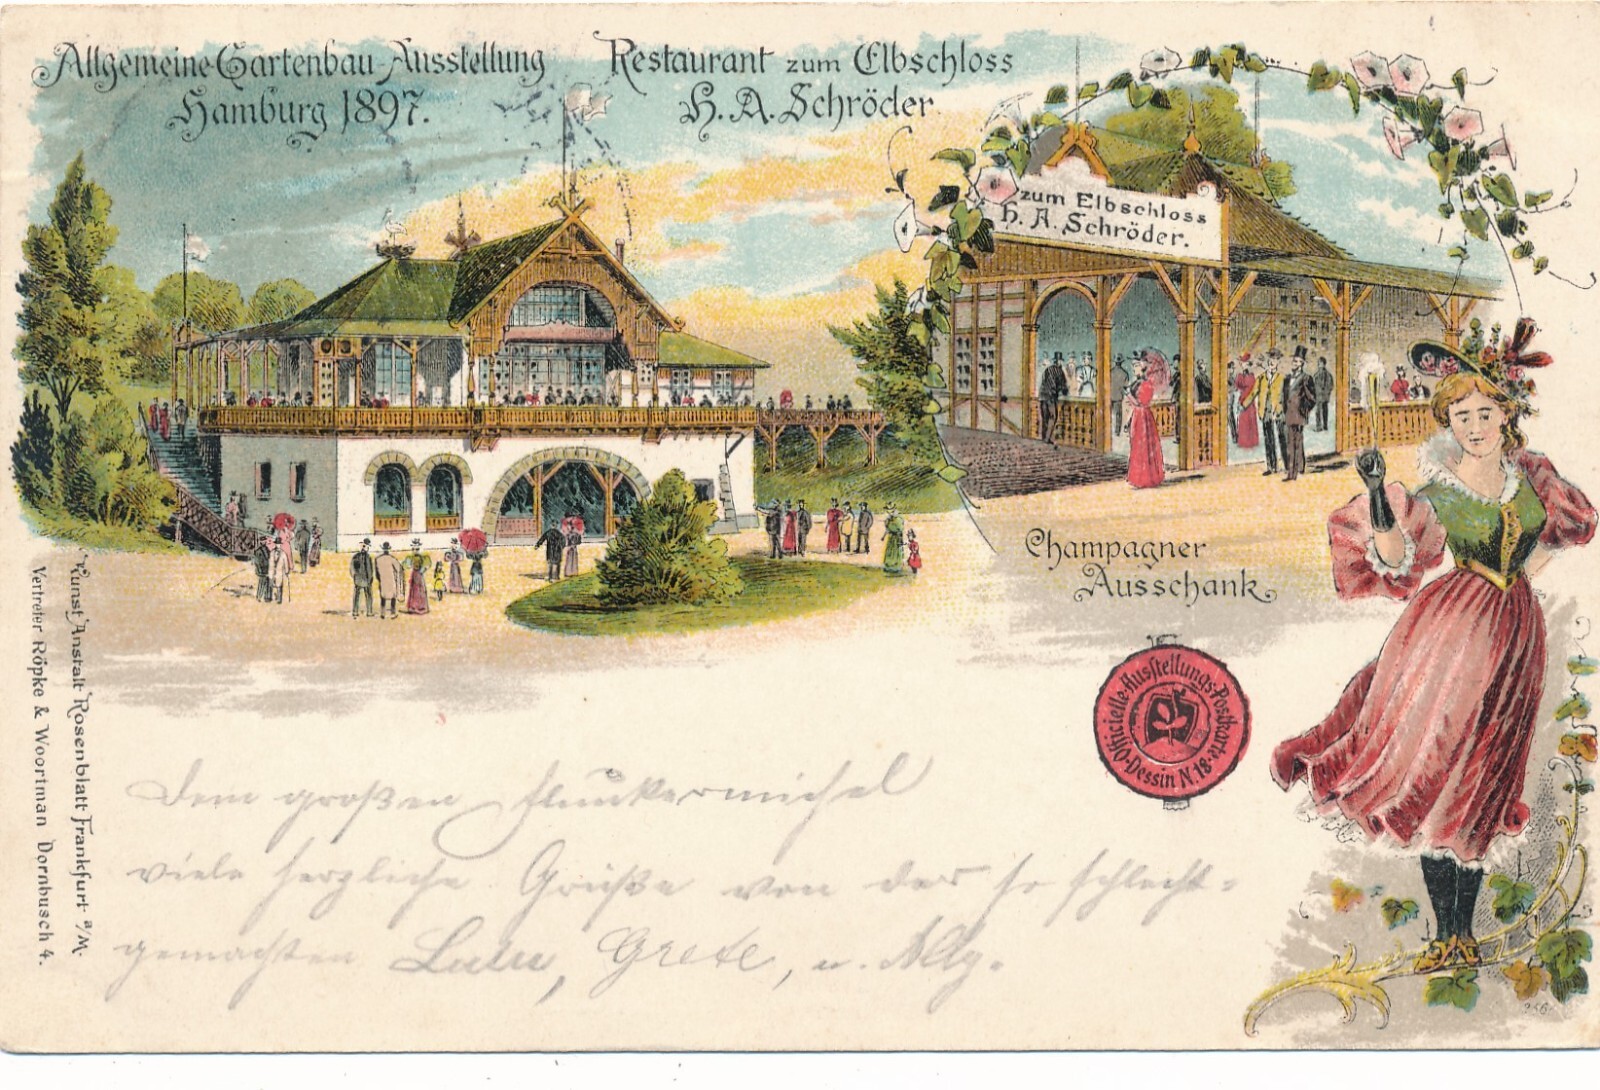 Allgemeine Gartenbau-Ausstellung
Hamburg 1897.
Restaurant zum Elbschloss
H. A. Schröder
zum Elbschloss
H. A. Schröder.
Champagner
Ausschank
Officielle-Ausstellungs-Postkarte
Dessin N. 18
Kunst Anstalt Rosenblatt Frankfurt a/M.
Vertreter Röpke & Woortman Dornbusch 4.
Dem großen Flunkermichel
viele herzliche Grüße von der so schlecht-
gemachten Lulu, Grete, u.